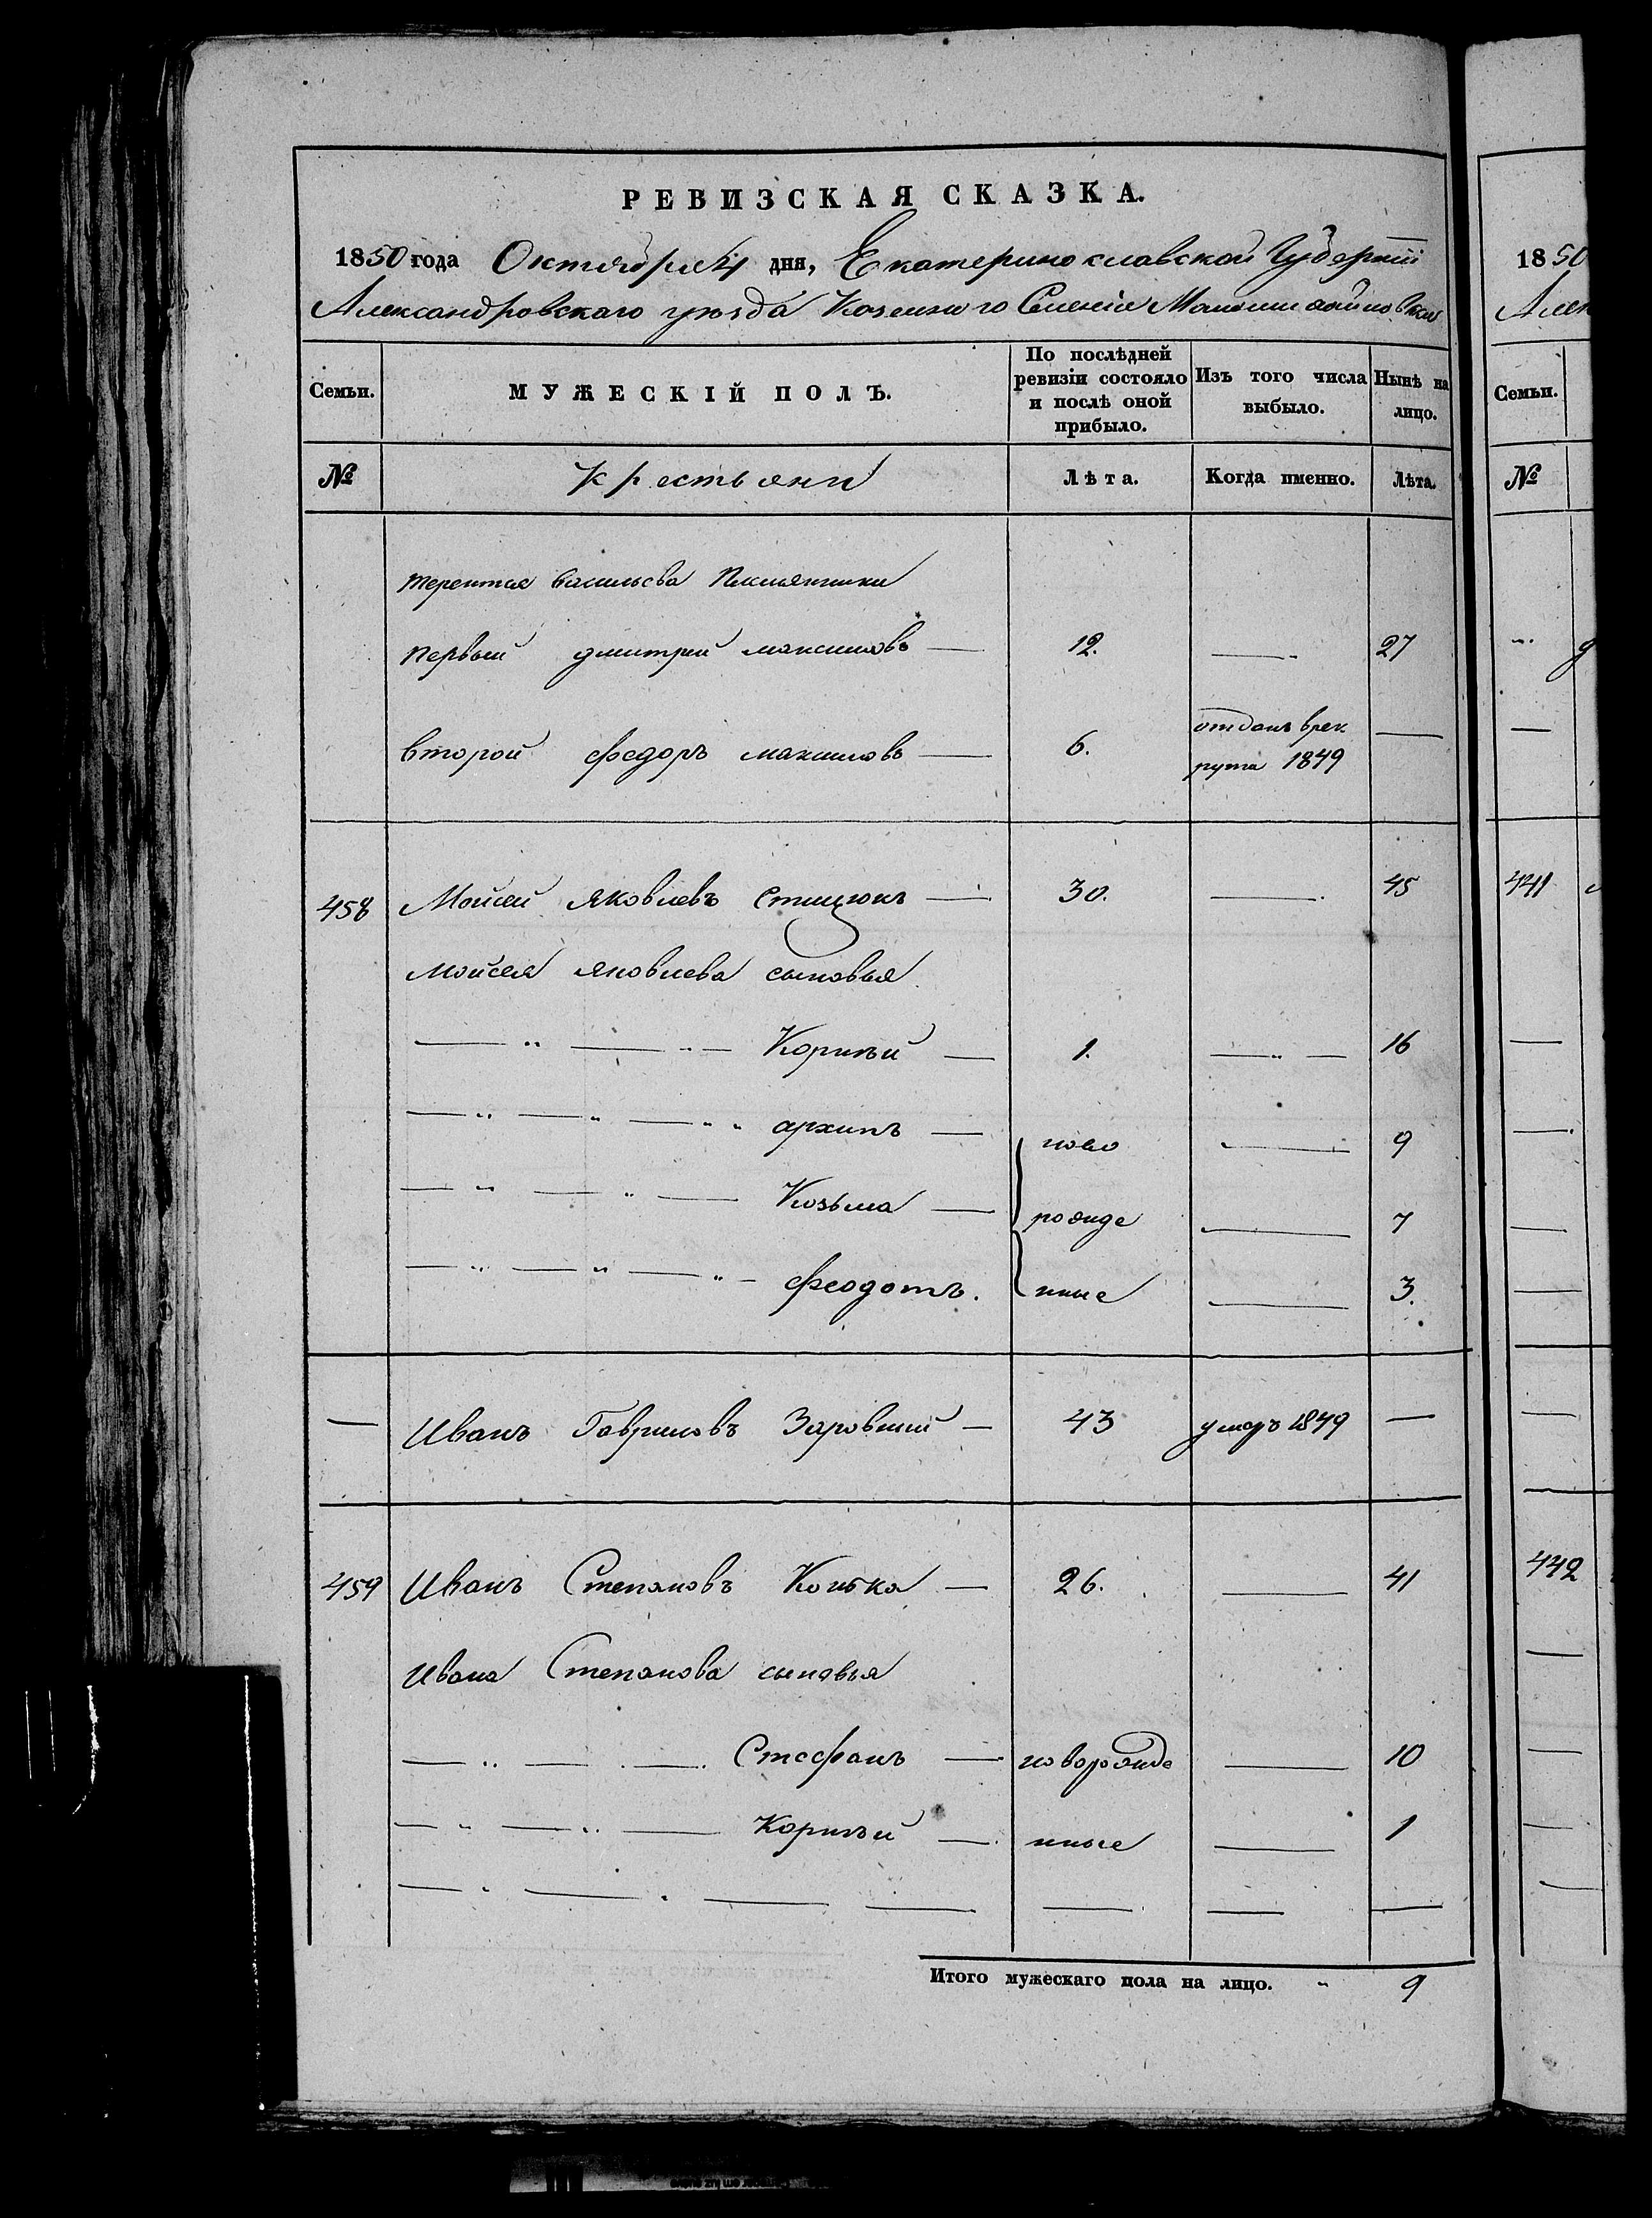 РЕВИЗСКАЯ СКАЗКА.
1850 года Октября 4 дня, Екатеринославской Губерніи
Александровскаго уѣзда Казеннаго Селенія
Семьи. МУЖЕСКІЙ ПОЛЪ. По послѣдней ревизіи состояло и послѣ оной прибыло. Изъ того числа выбыло. Нынѣ на лицо.
№ Крестьяни Лѣта. Когда именно. Лѣта.
терентия васильева Племянники
первый дмитрий максимовъ 12. 27
второй федоръ максимовъ 6. отданъ врек
рута 1849
458 Мойсей яковлевъ 30. 45
мойсея яковлева сыновья
Корнѣй 1. 16
архипъ ново 9
Козьма рожде 7
феодотъ. нные 3.
Иванъ Гавриловъ 43 умеръ 1849
459 Иванъ Степановъ Конька 26. 41
Ивана Степанова сыновья
Стефанъ новорожде 10
Корнѣй нные 1
Итого мужескаго пола на лицо. 9
1850
Алек
Семьи.
№
441
442